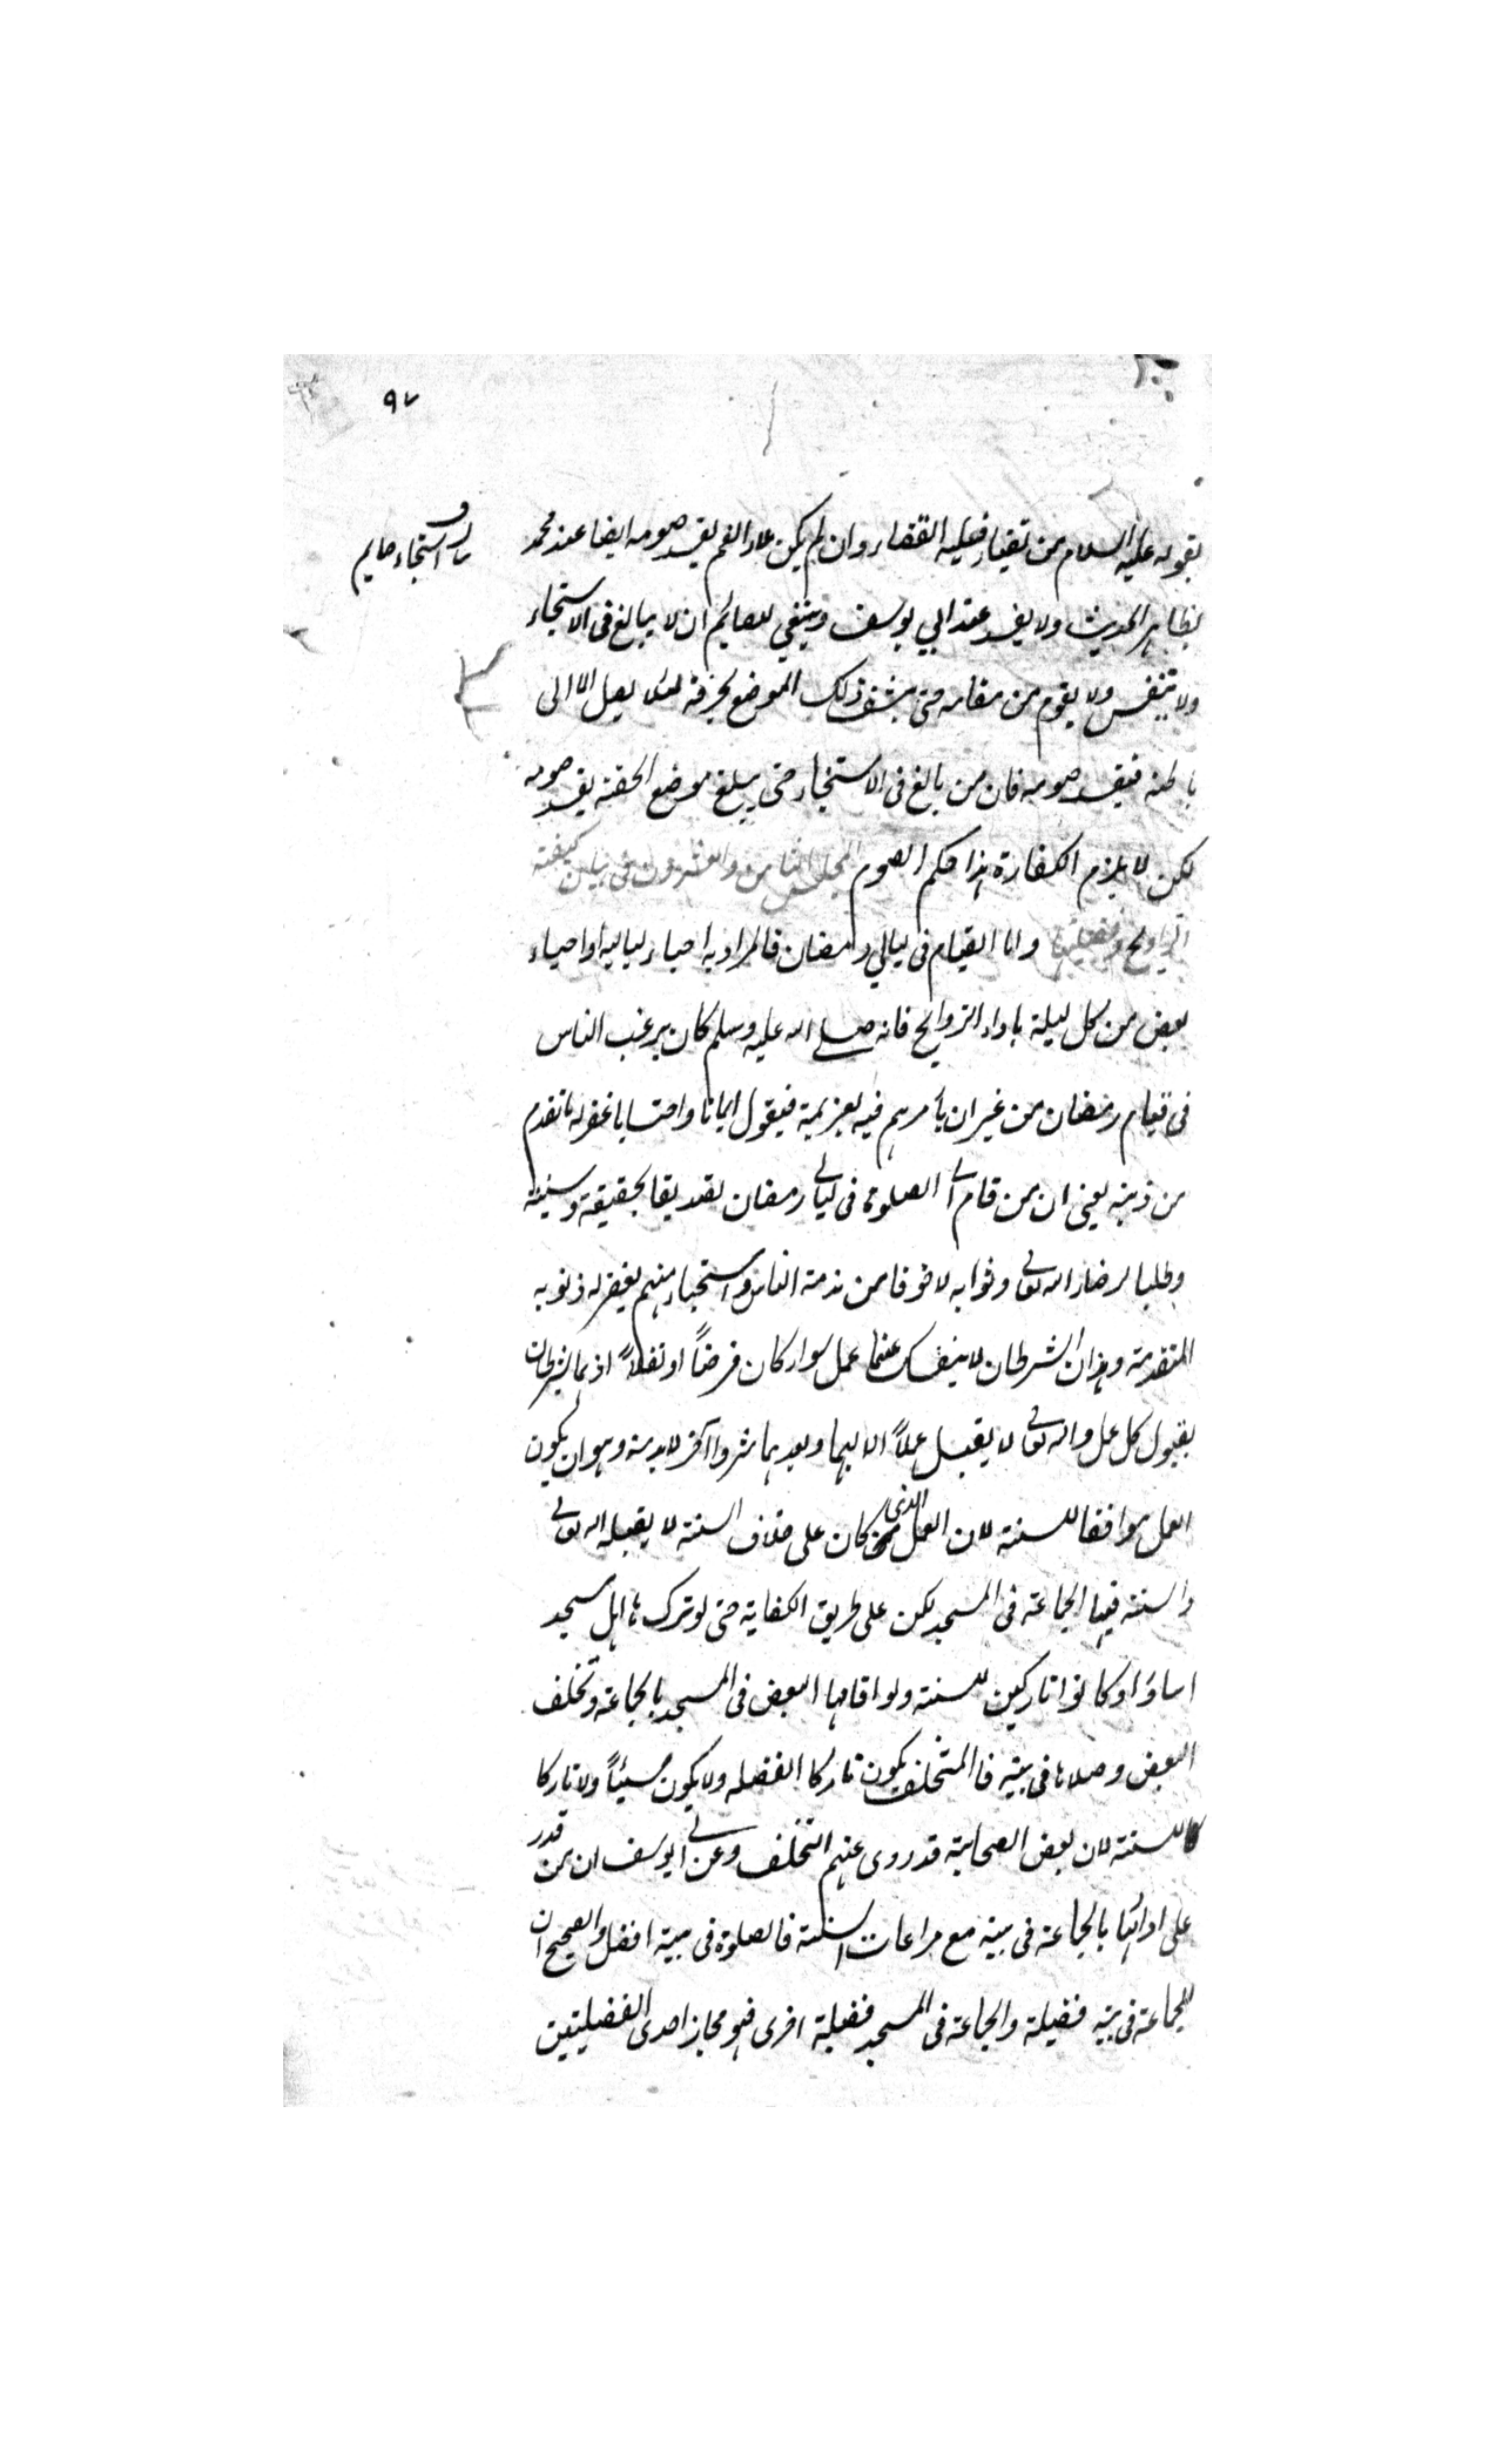 ٩٧
بقوله عليه السلام من تقياء فعليه القضاء وان لم يكن ملاء الفم يفسد صومه ايضا عند محمد
استنجاء صايم
بظاهر الحديث ولا يفسد عند ابي يوسف وينبغي للصايم ان لا يبالغ فى الاستنجاء
ولا يتنفس ولا يقوم من مقامه حتى ينشف ذلك الموضع بخرقة لئلا يصل الماء الى
باطنه فيفسد صومه فان من بالغ فى الاستنجاء حتى يبلغ موضع الحقنة يفسد صومه
لكن لا يلزم الكفارة هذا حكم الصوم المجلس الثامن والعشرون فى بيان كيفية
التراويح وفضيلتها واما القيام فى ليالي رمضان فالمراد به احياء لياليه او احياء
بعض من كل ليلة باداء التراويح فانه صلى الله عليه وسلم كان يرغب الناس
فى قيام رمضان من غير ان يأمرهم فيه بعزيمة فيقول ايمانا واحتسابا غفر له ما تقدم
من ذنبه يعنى ان من قام الى الصلوة فى ليالى رمضان تصديقا بحقيقة وسنية
وطلبا لرضاء الله تعالى وثوابه لا خوفا من مذمة الناس واستحياء منهم يغفر له ذنوبه
المتقدمة وهذان الشرطان لا ينفك عنهما عمل سواء كان فرضاً او نفلاً اذ هما شرطان
بقبول كل عمل والله تعالى لا يقبل عملاً الا بهما وبعدهما شرط آخر لا بد منه وهو ان يكون
العمل موافقا للسنة لان العمل الذى كان على خلاف السنة لا يقبله الله تعالى
والسنة فيها الجماعة فى المسجد لكن على طريق الكفاية حتى لو تركها اهل مسجد
اساؤا وكانوا تاركين للسنة ولو اقامها البعض فى المسجد بالجماعة وتخلف
البعض وصلاها فى بيته فالمتخلف يكون تاركا الفضله ولا يكون مسيئاً ولا تاركا
للسنة لان بعض الصحابة قد روى عنهم التخلف وعن ابى يوسف ان من قدر
على ادائها بالجماعة فى بيته مع مراعات السنة فالصلوة فى بيته افضل والصحيح ان
للجماعة فى بيته فضيلة والجماعة فى المسجد فضيلة اخرى فهو مجاز احدى الفضيلتين